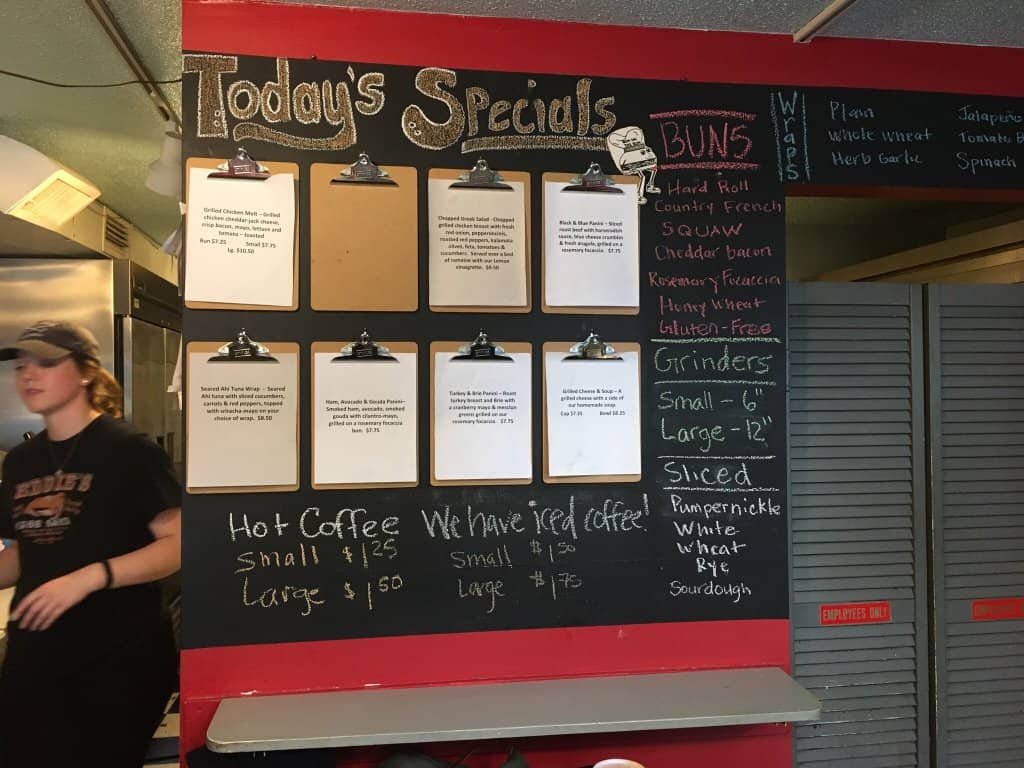 Today's Specials
Grilled Chicken Melt – Grilled
chicken cheddar-jack cheese,
crisp bacon, mayo, lettuce and
tomato – toasted
Bun $7.25 Small $7.75
Lg. $10.50
Chopped Greek Salad -Chopped
grilled chicken breast with fresh
red onion, pepperoncini,
roasted red peppers, kalamata
olives, feta, tomatoes &
cucumbers. Served over a bed
of romaine with our Lemon
vinaigrette. $9.50
Black & Blue Panini – Sliced
roast beef with horseradish
sauce, blue cheese crumbles
& fresh arugula, grilled on a
rosemary focaccia. $7.75
Seared Ahi Tuna Wrap - Seared
Ahi tuna with sliced cucumbers,
carrots & red peppers, topped
with sriracha-mayo on your
choice of wrap. $8.50
Ham, Avocado & Gouda Panini–
Smoked ham, avocado, smoked
gouda with cilantro-mayo,
grilled on a rosemary focaccia
bun. $7.75
Turkey & Brie Panini – Roast
turkey breast and Brie with
a cranberry mayo & mesclun
greens grilled on our
rosemary focaccia. $7.75
Grilled Cheese & Soup – A
grilled cheese with a side of
our homemade soup.
Cup $7.25 Bowl $8.25
Hot Coffee
Small $1 25
Large $1 50
We have iced coffee!
Small $1 50
Large $1 75
BUNS
Hard Roll
Country French
SQUAW
Cheddar bacon
Rosemary Focaccia
Honey Wheat
Gluten-Free
Grinders
Small – 6"
Large – 12"
Sliced
Pumpernickle
White
Wheat
Rye
Sourdough
Wraps
Plain
Whole Wheat
Herb Garlic
Jalapeño
Tomato B
Spinach
EMPLOYEES ONLY
EMPLOYEES